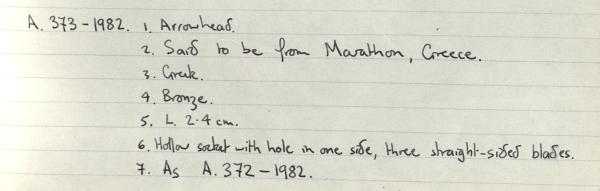 A. 373-1982. 1. Arrowhead.
2. Said to be from Marathon, Greece.
3. Greek.
4. Bronze.
5. L. 2.4 cm.
6. Hollow socket with hole in one side, three straight-sided blades.
7. As A. 372-1982.